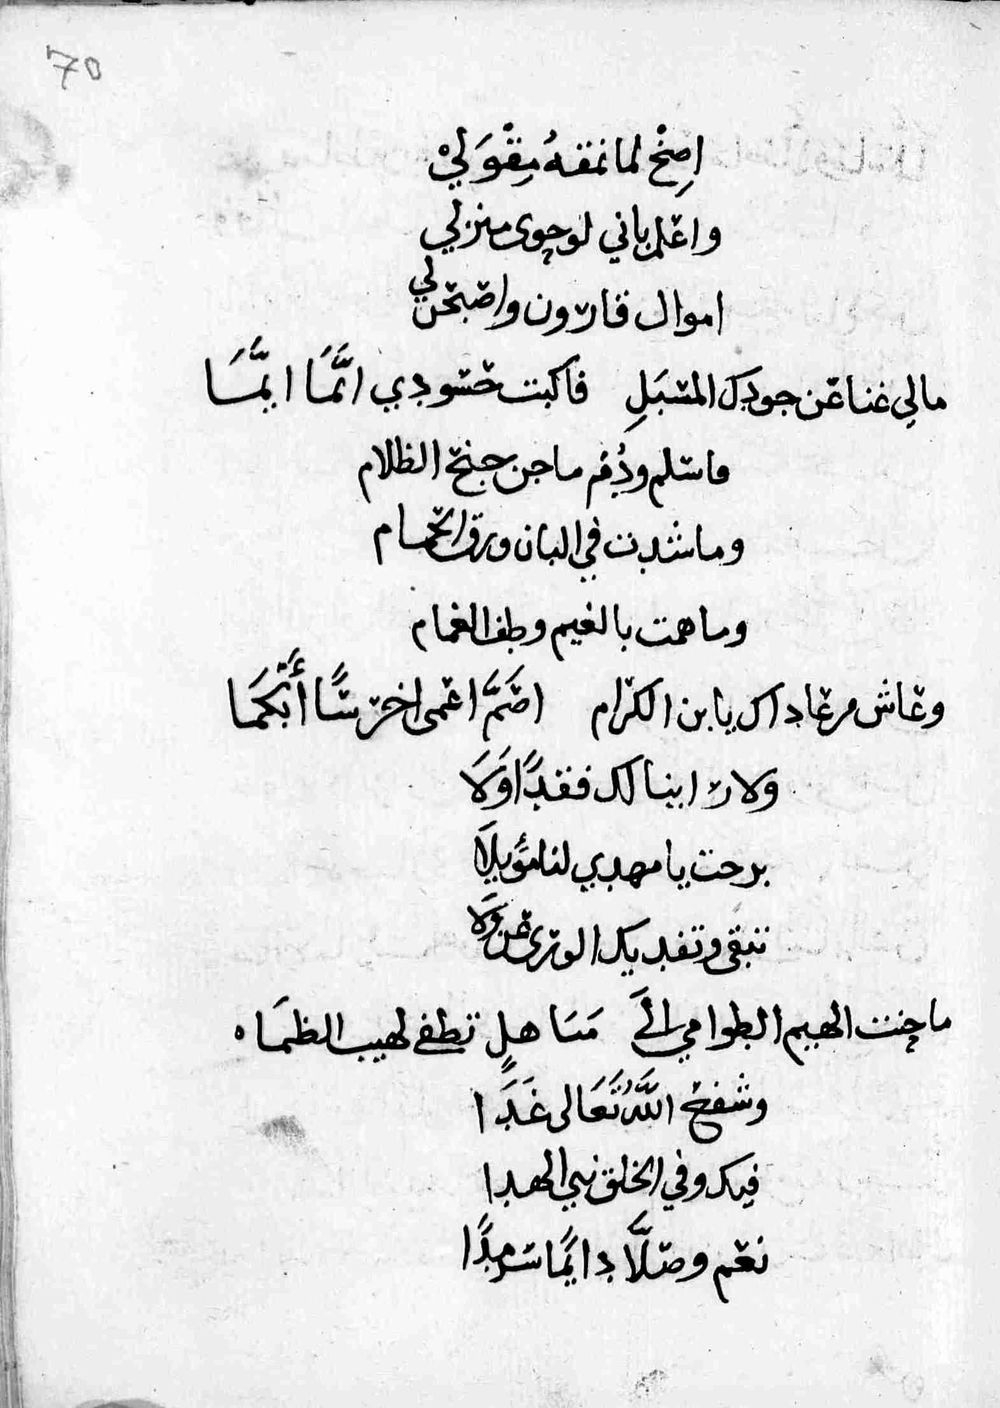 70
اصِخْ لما نمقهُ مِقْوَليْ
واعلم باني لو حوى منزلي
اموال قارون واصبحن لي
مالي غنا عن جودك المسبَلِ فاكبت حسودي انَّمَا ايمَّسَا
فاسلم ودُم ما جن جنح الظلام
وما شدت في البان ورق الحمام
وما همت بالغيم وطف الغمام
وعاش من عاداك يا بن الكرام اصَمَّ اعمى اخرسًا أبْكَمَا
ولا راينا لك فقدًا وَلَا
برحت يا مهدي لنا مؤيلَا
تبقى وتفديك الورى عن ولَا
ما حنت الهيم الطوامي الَى مَسَاهلٍ تطفي لهيب الظمَاه
وشفع اللهُ تَعَالى غَدَا
فيك وفي الخلق نبي الهدا
نعم وصلَّا دايمًا سرمدًا